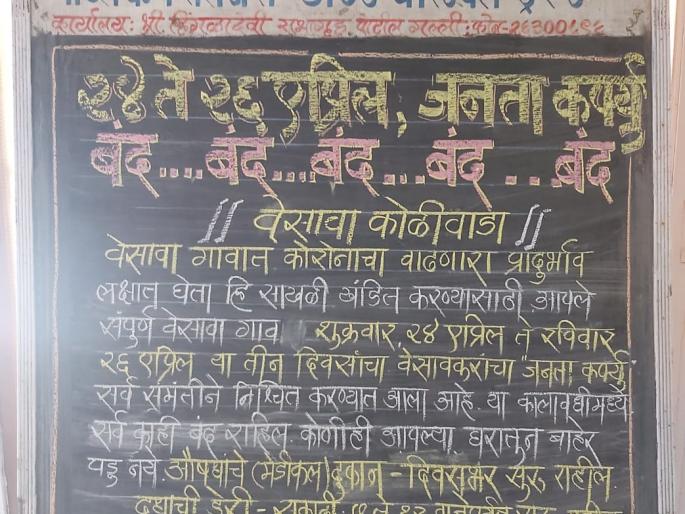 कार्यालय: श्री हिंगळादेवी सभागृह, पाटील गल्ली: फोन-२६३००८९६
२४ ते २६ एप्रिल, जनता कर्फ्यु
बंद.... बंद.... बंद... बंद ... बंद
// वेसावा कोळीवाडा //
वेसावा गावात कोरोनाचा वाढणारा प्रादुर्भाव
लक्षात घेता हि साखळी खंडित करण्यासाठी आपले
संपुर्ण वेसावा गाव शुक्रवार, २४ एप्रिल ते रविवार
२६ एप्रिल या तीन दिवसांचा वेसावकरांचा "जनता कर्फ्यु"
सर्व संमतीने निश्चित करण्यात आला आहे. या कालावधीमध्ये
सर्व काही बंद राहिल. कोणीही आपल्या घरातून बाहेर
पडु नये. औषधांचे (मेडीकल) दुकान - दिवसभर सुरु राहील.
दुधाची डेरी - सकाळी